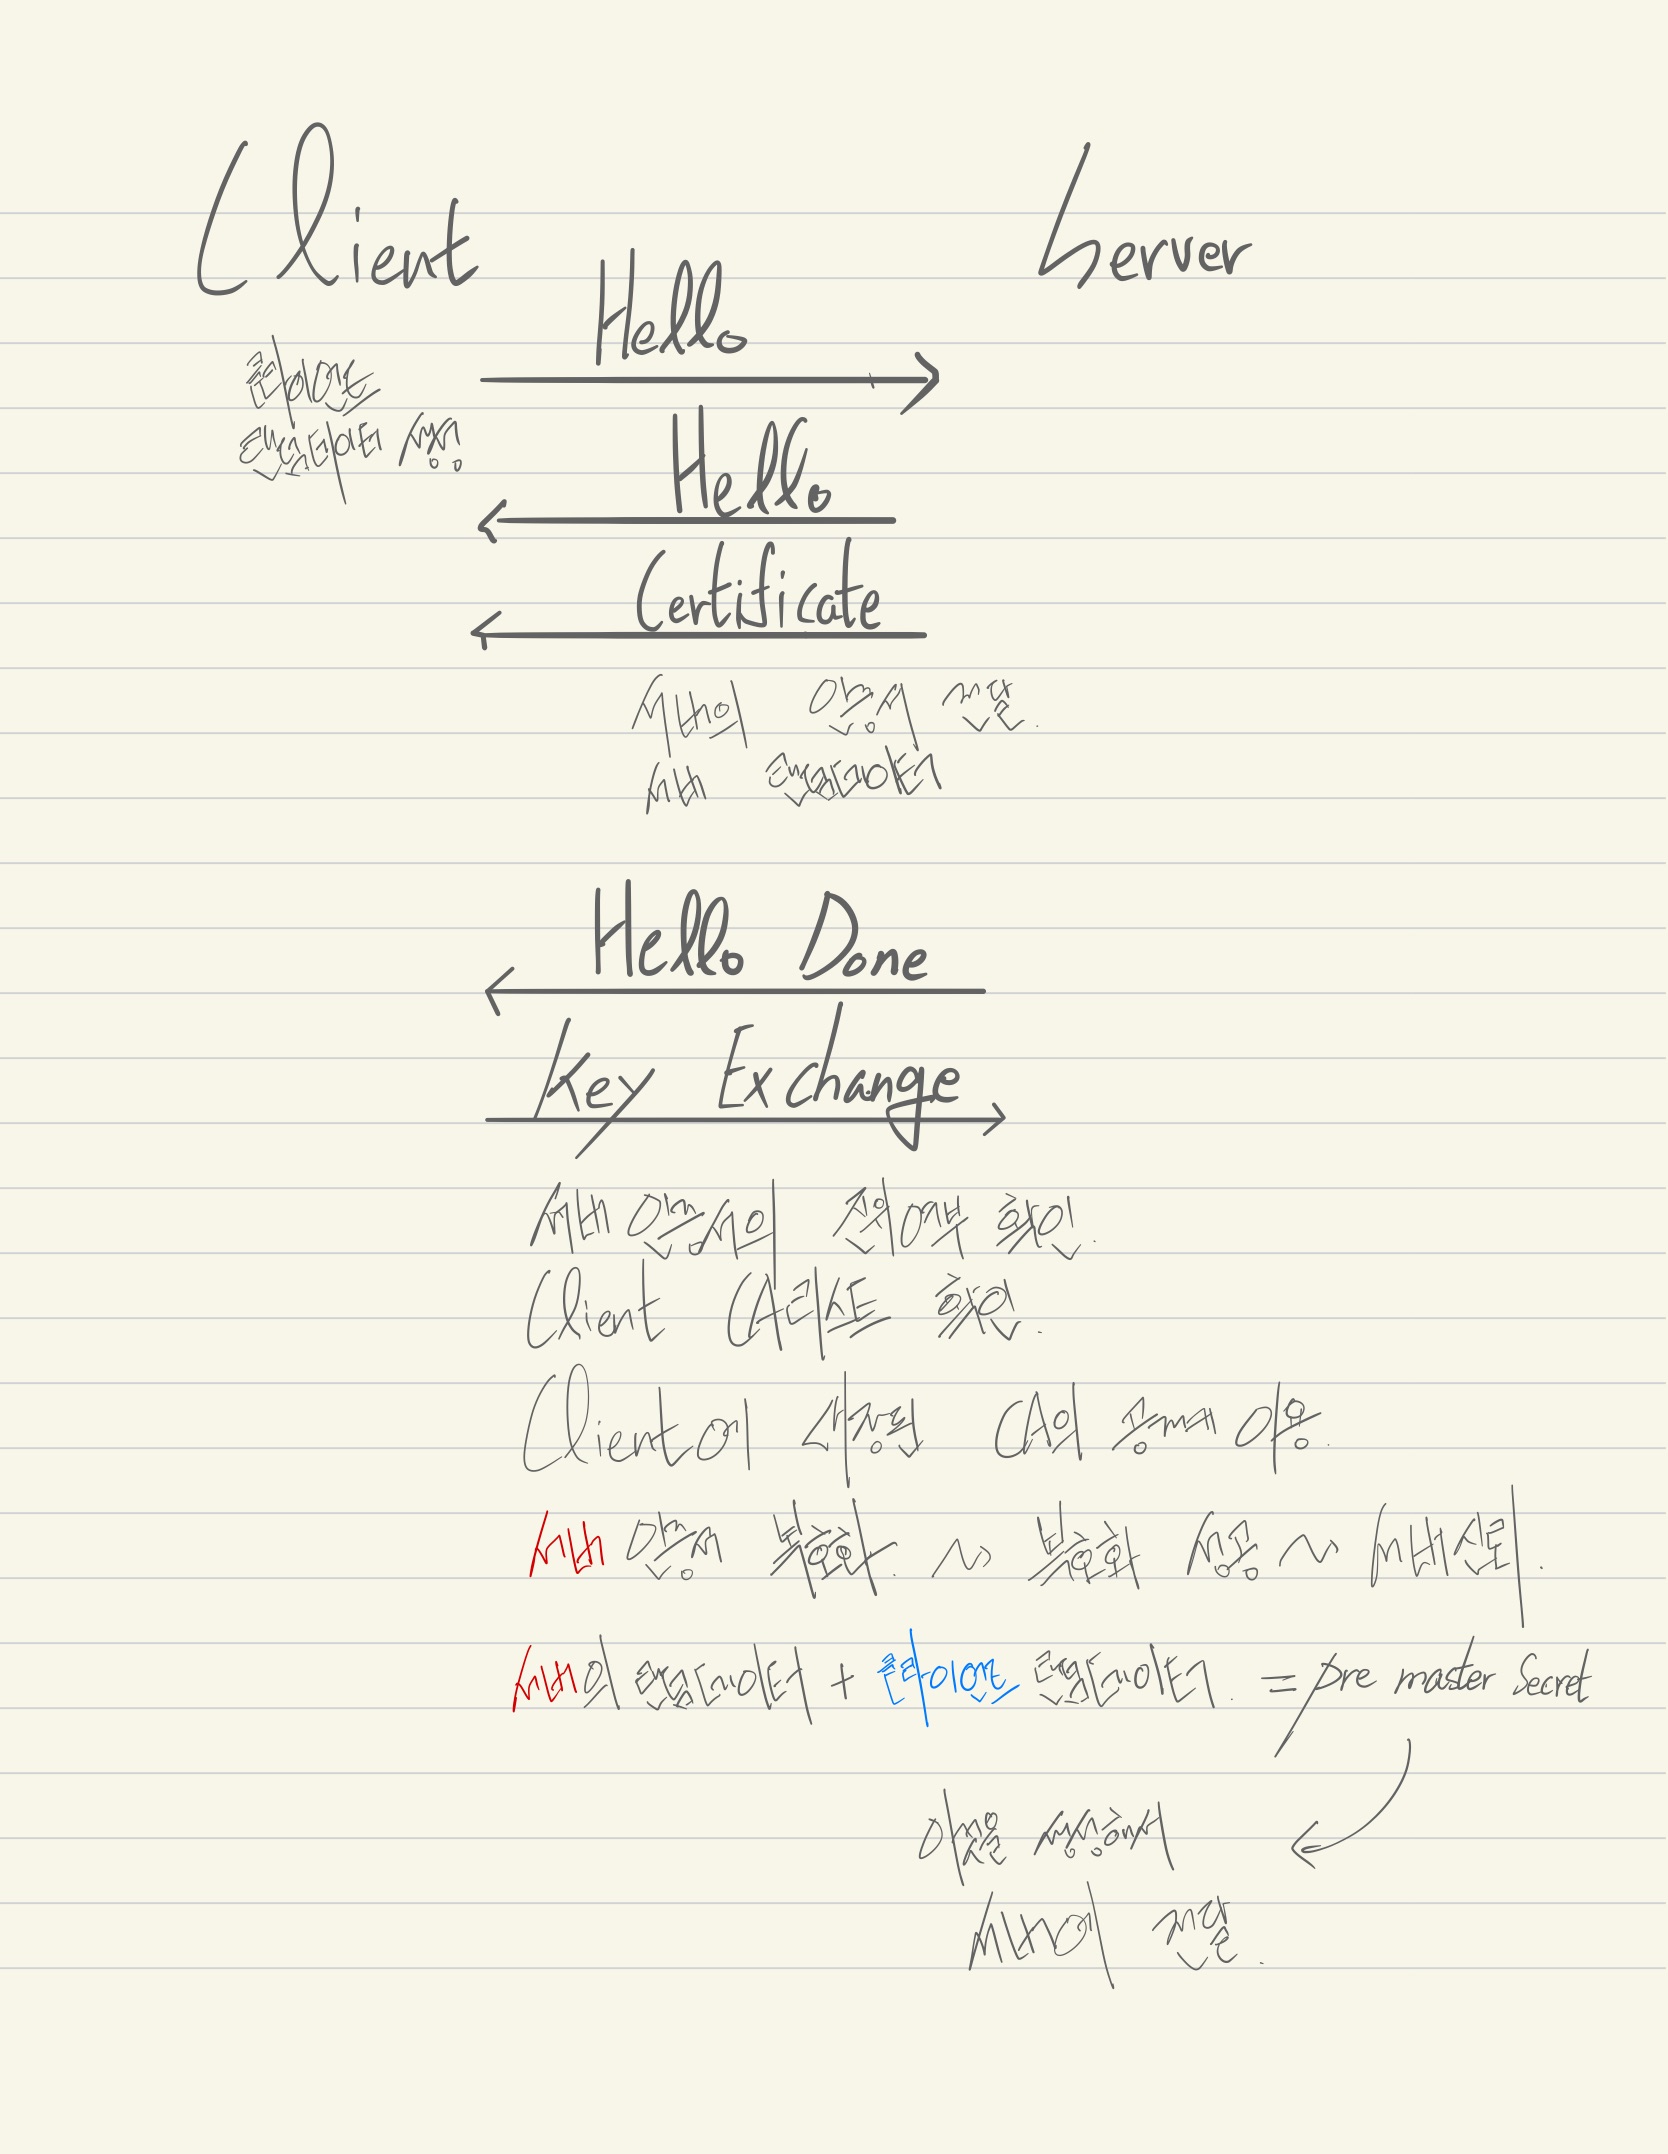 Client Server
Hello
클라이언트
랜덤데이터 생성
Hello
Certificate
서버의 인증서 전달.
서버 랜덤데이터
Hello Done
Key Exchange
서버 인증서의 진위여부 확인.
Client CA리스트 확인.
Client에 내장된 CA의 공개키 이용.
서버 인증서 복호화. ~> 복호화 성공 ~> 서버신뢰.
서버의 랜덤데이터 + 클라이언트 랜덤데이터. = pre master Secret
이것을 생성해서
서버에 전달.